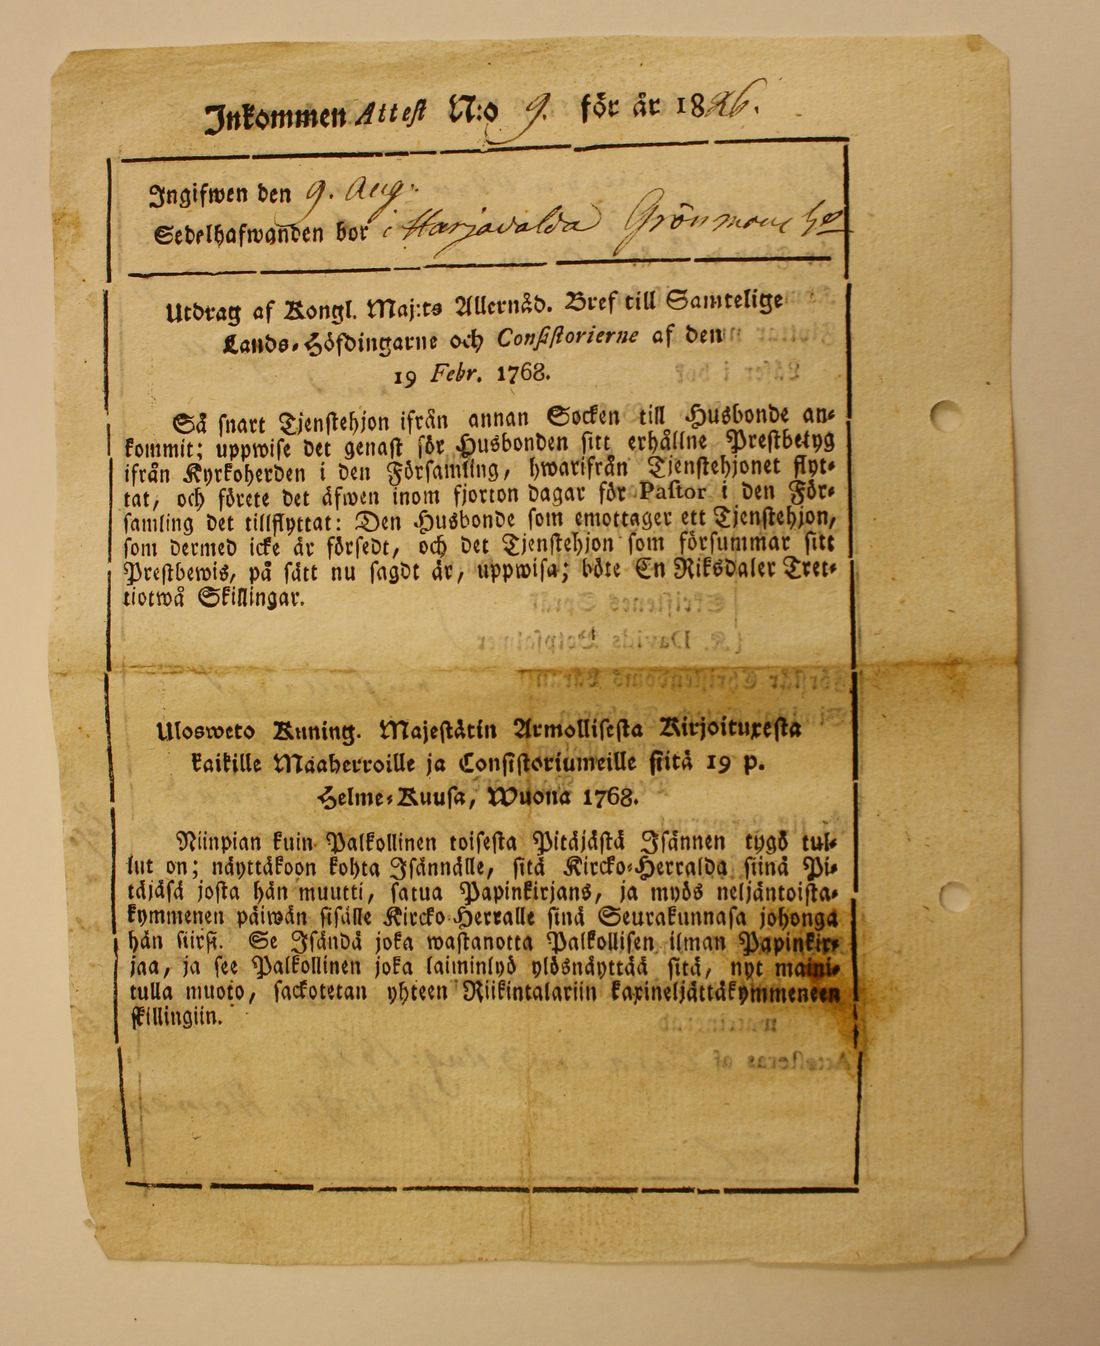 Inkommen Attest N:o 9. för år 1826.
Ingifwen den 9. Aug.
Sedelhafwanden bor i Harjavalda
Utdrag af Kongl. Maj:ts Allernåd. Bref till Samtelige
Lands-Höfdingarne och Consistorierne af den
19 Febr. 1768.
Så snart Tjenstehjon ifrån annan Socken till Husbonde an-
kommit; uppwise det genast för Husbonden sitt erhållne Prestbetyg
ifrån Kyrkoherden i den Församling, hwarifrån Tjenstehjonet flyt-
tat, och förete det äfwen inom fjorton dagar för Pastor i den För-
samling det tillflyttat: Den Husbonde som emottager ett Tjenstehjon,
som dermed icke är försedt, och det Tjenstehjon som försummar sitt
Prestbewis, på sätt nu sagdt är, uppwisa; böte En Riksdaler Tret-
tiotwå Skillingar.
Ulosweto Kuning. Majestätin Armollisesta Kirjoituxesta
kaikille Maaherroille ja Consistoriumeille siitä 19 p.
Helme-Kuusa, Wuona 1768.
Niinpian kuin Palkollinen toisesta Pitäjästä Isännen tygö tul-
lut on; näyttäkoon kohta Isännälle, sitä Kircko-Herralda siinä Pi-
täjäsä josta hän muutti, satua Papinkirjans, ja myös neljäntoista-
kymmenen päiwän sisälle Kircko-Herralle sinä Seurakunnasa johonga
hän siirsi. Se Isändä joka wastanotta Palkollisen ilman Papinkir-
jaa, ja see Palkollinen joka laiminlyö ylösnäyttää sitä, nyt maini-
tulla muoto, sackotetan yhteen Riikintalariin kaxineljättäkymmeneen
skillingiin.